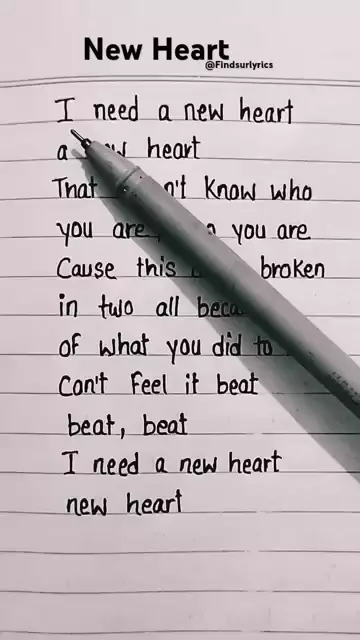 New Heart
@Findsurlyrics
I need a new heart
a heart
That know who
you are, you are
Cause this broken
in two all
of what you did to
Can't feel it beat
beat, beat
I need a new heart
new heart